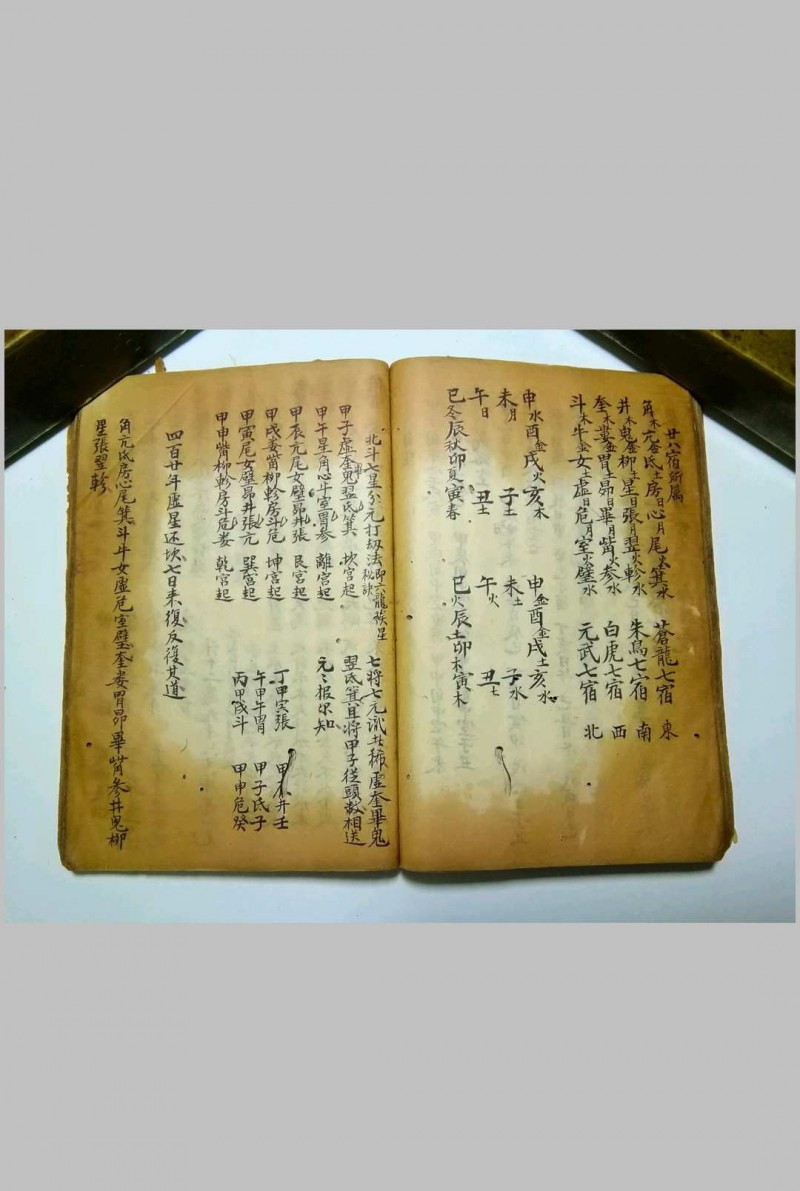 廿八宿所属
角木亢金氐土房日心月尾火箕水 蒼龍七宿 東
井木鬼金柳土星日張月翌火軫水 朱鳥七宿 南
奎木婁金胃土昴日畢月觜火参水 白虎七宿 西
斗木牛金女土虚日危月室火壁水 元武七宿 北
申水酉金戌火亥木 申金酉金戌土亥水
未月 子土 未土 子水
午日 丑土 午火 丑土
巳冬辰秋卯夏寅春 巳火辰土卯木寅木
北斗七星分元打刼法即六龍族星秘訣 七将七元
甲子虚奎鬼翌氐箕 坎宫起 翌氐箕且将甲子從頭数相送
甲午星角心斗室胃参 離宫起 元々报尔知
甲辰亢尾女壁昴井張 艮宫起 丁甲寅張
甲戌婁觜柳軫房斗危 坤宫起 午甲午胃
甲寅尾女壁昴井張亢 巽宫起 丙甲戌斗 甲子氐子
甲申觜柳軫房斗危娄 乾宫起 甲申危癸
四百廿年虚星还坎七日来復反復其道
角亢氐房心尾箕斗牛女虚危室壁奎娄胃昴畢觜参井鬼柳
星張翌軫